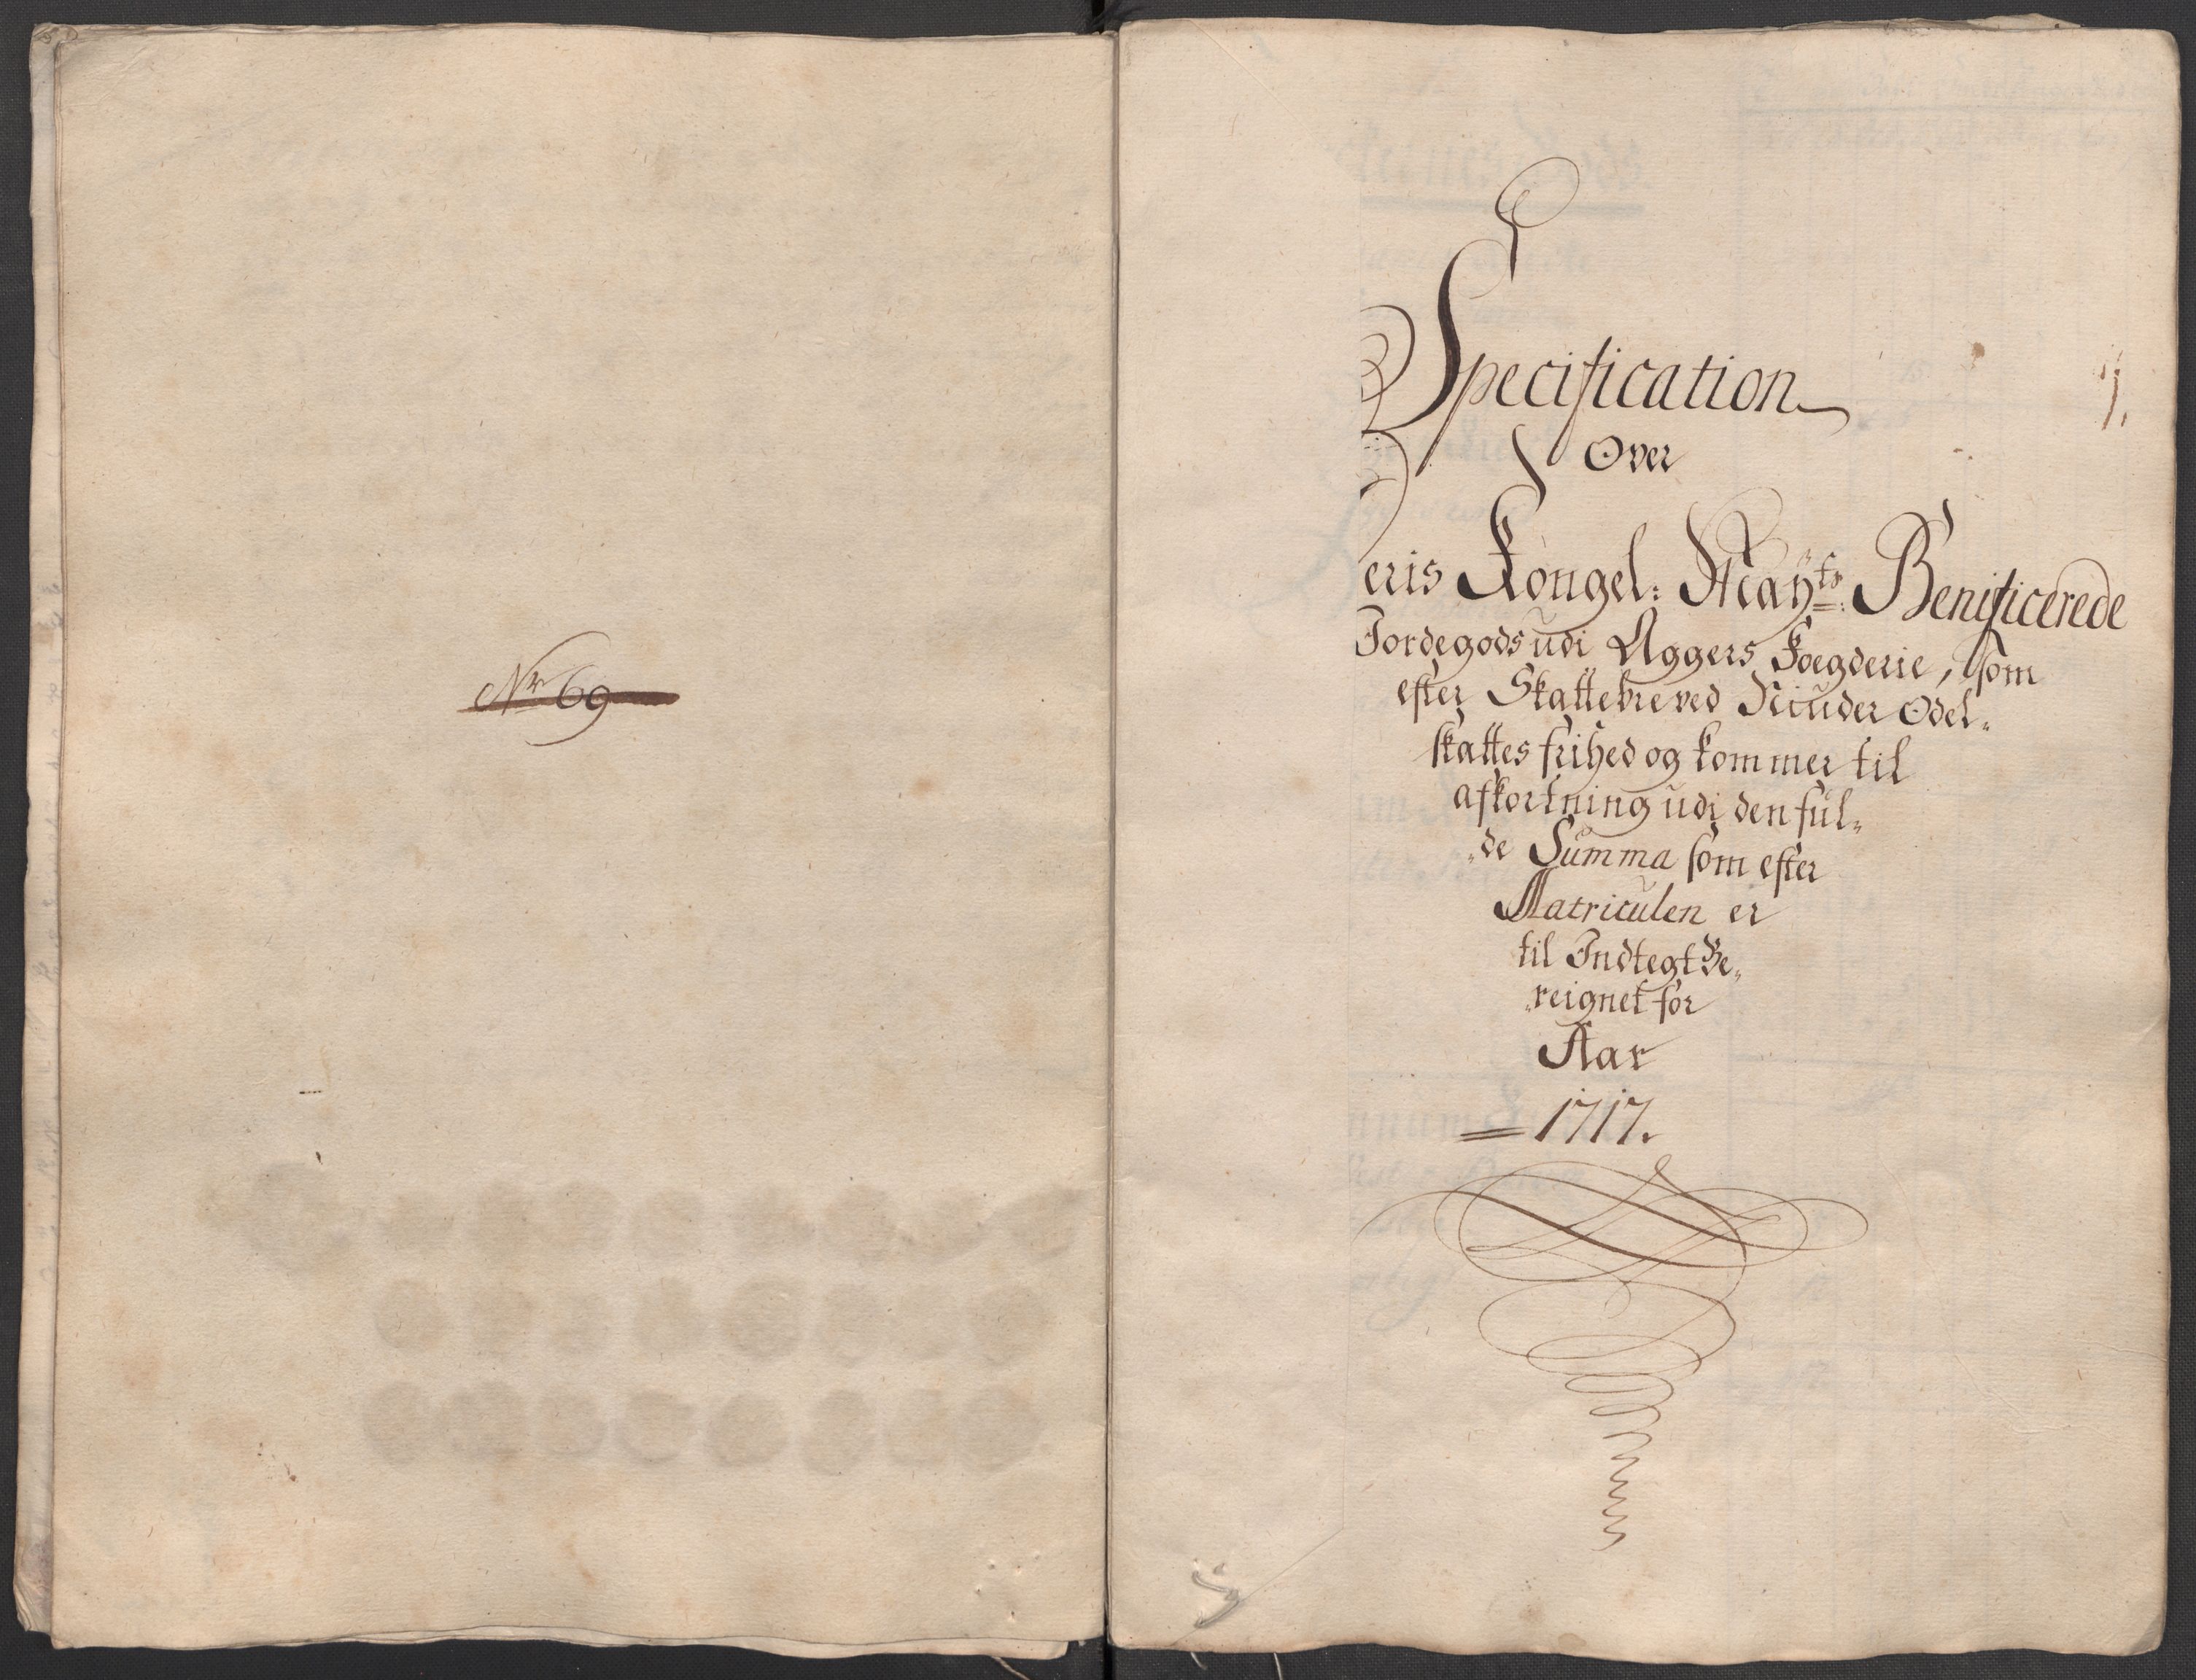 Nr 69
1.
Specification
Over
eris Kongel: Mayts: Benificerede
Jordegods udi Aggers Foegderie, som
efter Skattebreved Niuder Odel-
skattes frihed og kommer til
afkortning udi den ful-
de Summa som efter
Matriculen er
til Indtegt Be-
reignet for
Aar
1717.